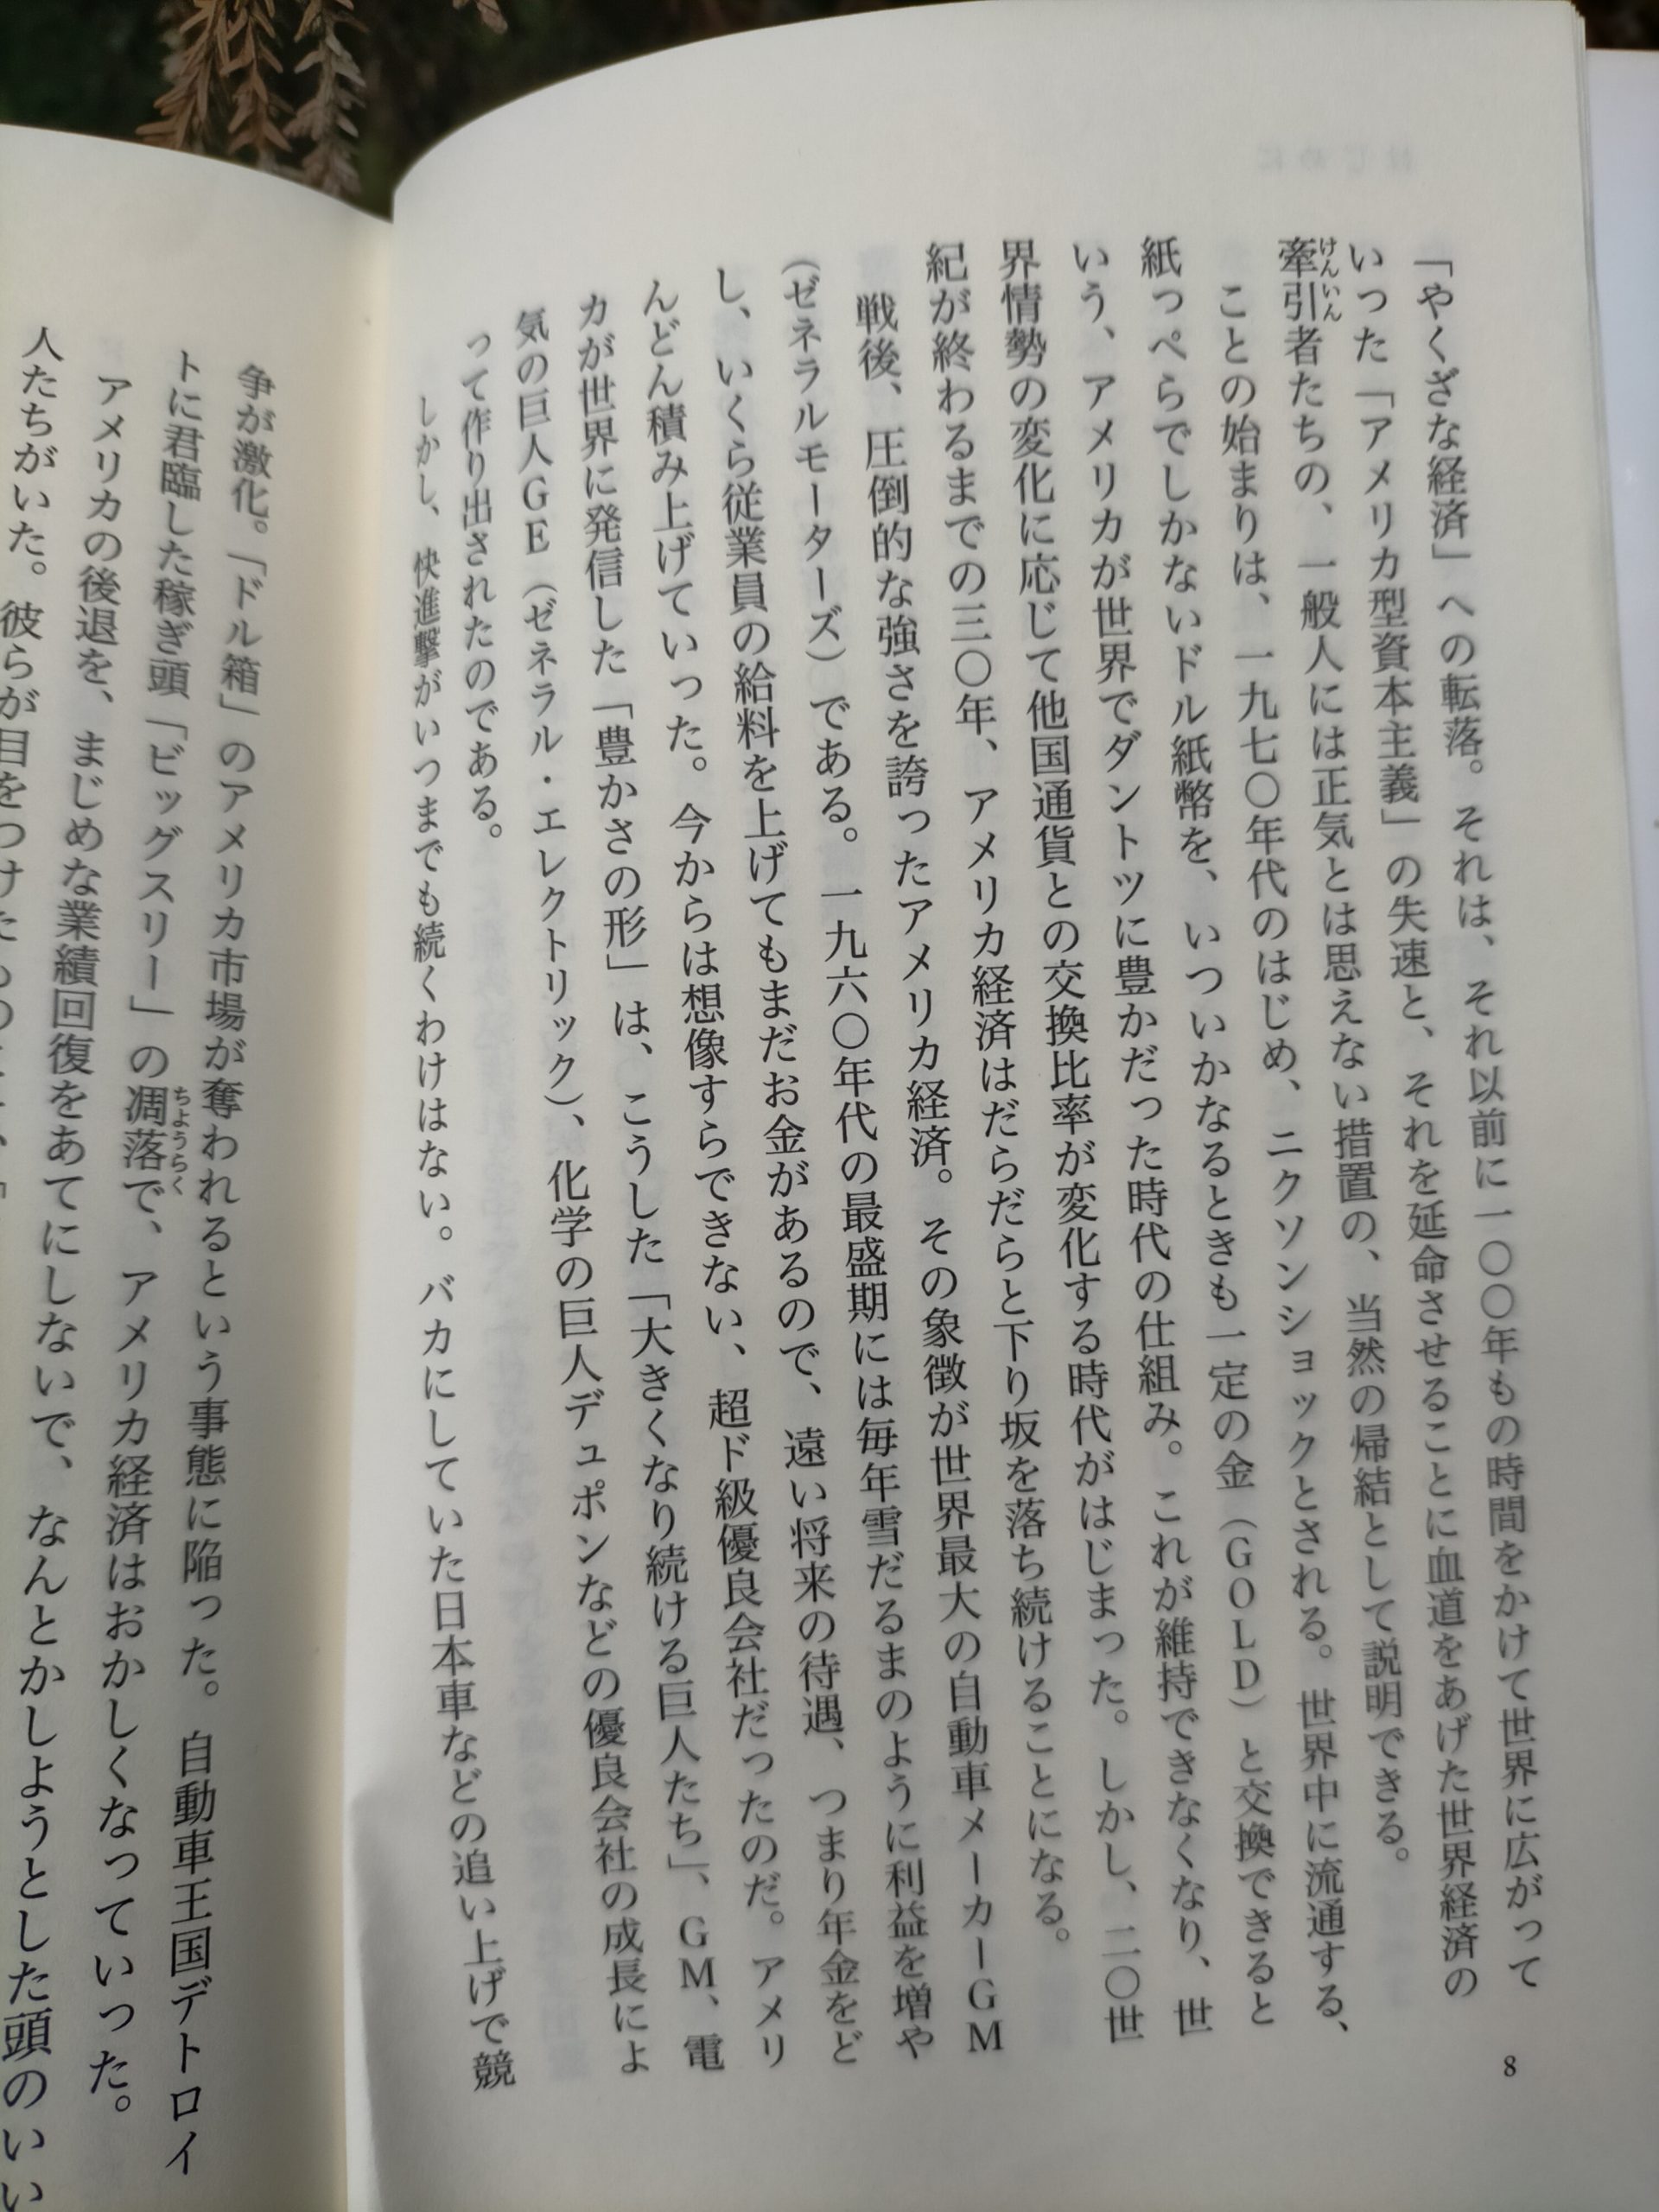 「やくざな経済」への転落。それは、それ以前に一〇〇年もの時間をかけて世界に広がって
いった「アメリカ型資本主義」の失速と、それを延命させることに血道をあげた世界経済の
牽引者たちの、一般人には正気とは思えない措置の、当然の帰結として説明できる。
けんいん
ことの始まりは、一九七〇年代のはじめ、ニクソンショックとされる。世界中に流通する、
紙っぺらでしかないドル紙幣を、いついかなるときも一定の金（GOLD）と交換できると
いう、アメリカが世界でダントツに豊かだった時代の仕組み。これが維持できなくなり、世
界情勢の変化に応じて他国通貨との交換比率が変化する時代がはじまった。しかし、二〇世
紀が終わるまでの三〇年、アメリカ経済はだらだらと下り坂を落ち続けることになる。
戦後、圧倒的な強さを誇ったアメリカ経済。その象徴が世界最大の自動車メーカーGM
（ゼネラルモーターズ）である。一九六〇年代の最盛期には毎年雪だるまのように利益を増や
し、いくら従業員の給料を上げてもまだお金があるので、遠い将来の待遇、つまり年金をど
んどん積み上げていった。今からは想像すらできない、超ド級優良会社だったのだ。アメリ
カが世界に発信した「豊かさの形」は、こうした「大きくなり続ける巨人たち」、GM、電
気の巨人GE（ゼネラル・エレクトリック）、化学の巨人デュポンなどの優良会社の成長によ
って作り出されたのである。
しかし、快進撃がいつまでも続くわけはない。バカにしていた日本車などの追い上げで競
8
争が激化。「ドル箱」のアメリカ市場が奪われるという事態に陥った。自動車王国デトロイ
トに君臨した稼ぎ頭「ビッグスリー」の凋落で、アメリカ経済はおかしくなっていった。
ちようらく
アメリカの後退を、まじめな業績回復をあてにしないで、なんとかしようとした頭のいい
人たちがいた。彼らが目をつけた